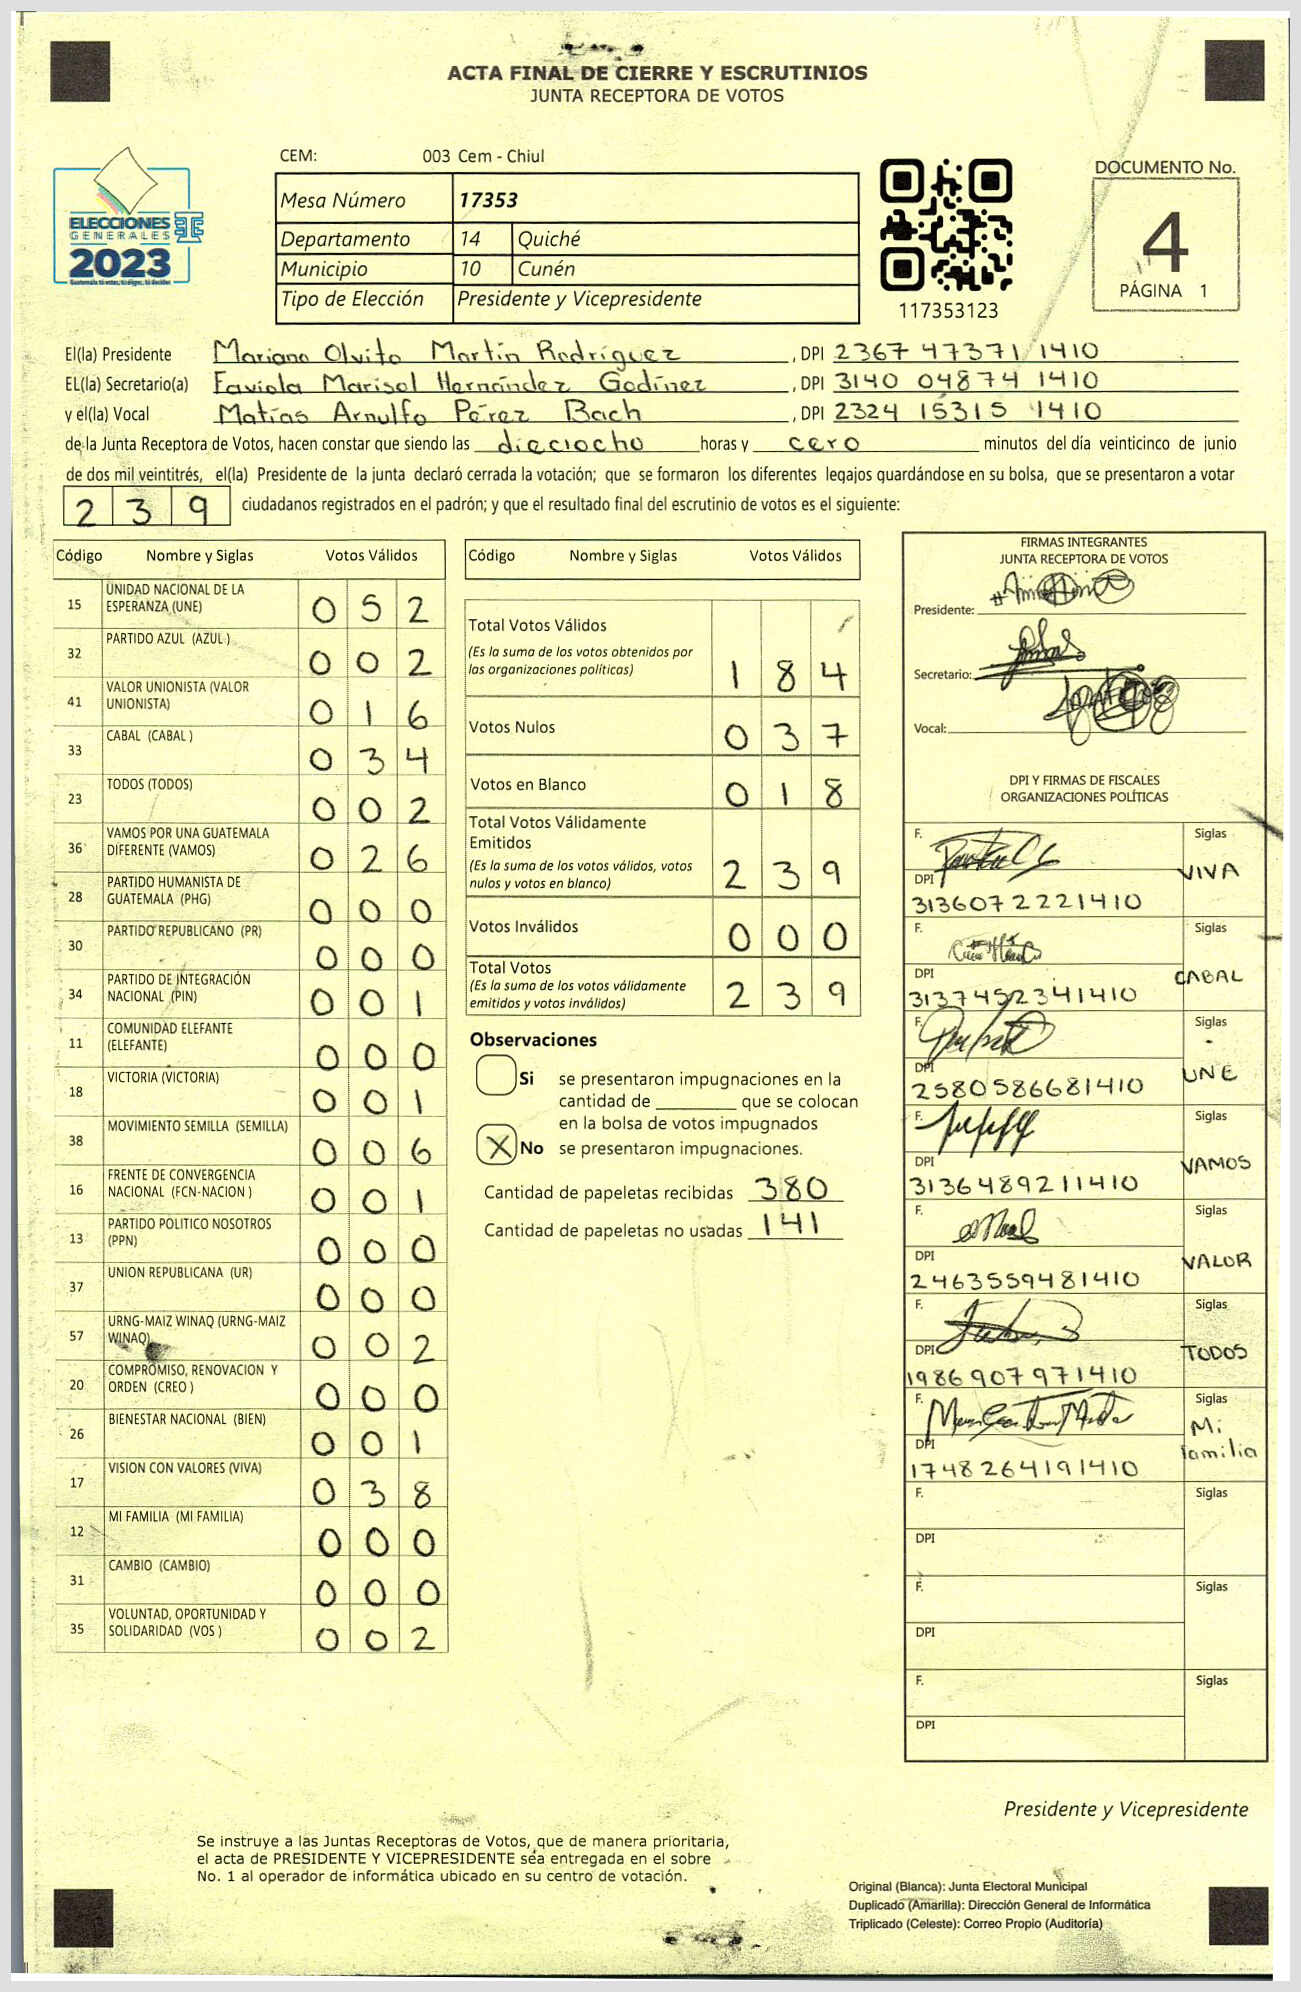 ACTA FINAL DE CIERRE Y ESCRUTINIOS
JUNTA RECEPTORA DE VOTOS
ELECCIONES
GENERALES
2023
Guatemala tú votas, tú eliges, tú decides
CEM: 003 Cem - Chiul
Mesa Número 17353
Departamento 14 Quiché
Municipio 10 Cunén
Tipo de Elección Presidente y Vicepresidente
117353123
DOCUMENTO No.
4
PÁGINA 1
El(la) Presidente Mariano Olvito Martín Rodríguez, DPI 2367 47371 1410
EL(la) Secretario(a) Faviola Marisol Hernández Godínez, DPI 3140 04874 1410
y el(la) Vocal Matías Arnulfo Pérez Bach, DPI 2324 15315 1410
de la Junta Receptora de Votos, hacen constar que siendo las dieciocho horas y cero minutos del día veinticinco de junio
de dos mil veintitrés, el(la) Presidente de la junta declaró cerrada la votación; que se formaron los diferentes legajos guardándose en su bolsa, que se presentaron a votar
239 ciudadanos registrados en el padrón; y que el resultado final del escrutinio de votos es el siguiente:
Código Nombre y Siglas Votos Válidos
15 UNIDAD NACIONAL DE LA ESPERANZA (UNE) 052
32 PARTIDO AZUL (AZUL ) 002
41 VALOR UNIONISTA (VALOR UNIONISTA) 016
33 CABAL (CABAL ) 034
23 TODOS (TODOS) 002
36 VAMOS POR UNA GUATEMALA DIFERENTE (VAMOS) 026
28 PARTIDO HUMANISTA DE GUATEMALA (PHG) 000
30 PARTIDO REPUBLICANO (PR) 000
34 PARTIDO DE INTEGRACIÓN NACIONAL (PIN) 001
11 COMUNIDAD ELEFANTE (ELEFANTE) 000
18 VICTORIA (VICTORIA) 001
38 MOVIMIENTO SEMILLA (SEMILLA) 006
16 FRENTE DE CONVERGENCIA NACIONAL (FCN-NACION ) 001
13 PARTIDO POLITICO NOSOTROS (PPN) 000
37 UNION REPUBLICANA (UR) 000
57 URNG-MAIZ WINAQ (URNG-MAIZ WINAQ) 002
20 COMPROMISO, RENOVACION Y ORDEN (CREO ) 000
26 BIENESTAR NACIONAL (BIEN) 001
17 VISION CON VALORES (VIVA) 038
12 MI FAMILIA (MI FAMILIA) 000
31 CAMBIO (CAMBIO) 000
35 VOLUNTAD, OPORTUNIDAD Y SOLIDARIDAD (VOS ) 002
Código Nombre y Siglas Votos Válidos
Total Votos Válidos
(Es la suma de los votos obtenidos por
las organizaciones políticas) 184
Votos Nulos 037
Votos en Blanco 018
Total Votos Válidamente
Emitidos
(Es la suma de los votos válidos, votos
nulos y votos en blanco) 239
Votos Inválidos 000
Total Votos
(Es la suma de los votos válidamente
emitidos y votos inválidos) 239
Observaciones
Si se presentaron impugnaciones en la
cantidad de ________ que se colocan
en la bolsa de votos impugnados
X No se presentaron impugnaciones.
Cantidad de papeletas recibidas 380
Cantidad de papeletas no usadas 141
FIRMAS INTEGRANTES
JUNTA RECEPTORA DE VOTOS
Presidente:
Secretario:
Vocal:
DPI Y FIRMAS DE FISCALES
ORGANIZACIONES POLÍTICAS
F. Siglas
DPI VIVA
3136072221410
F. Siglas
DPI CABAL
3137452341410
F. Siglas
DPI UNE
2580586681410
F. Siglas
DPI VAMOS
3136489211410
F. Siglas
DPI VALOR
2463559481410
F. Siglas
DPI TODOS
1986907971410
F. Siglas
DPI Mi familia
1748264191410
F. Siglas
DPI
F. Siglas
DPI
F. Siglas
DPI
Presidente y Vicepresidente
Se instruye a las Juntas Receptoras de Votos, que de manera prioritaria,
el acta de PRESIDENTE Y VICEPRESIDENTE sea entregada en el sobre
No. 1 al operador de informática ubicado en su centro de votación.
Original (Blanca): Junta Electoral Municipal
Duplicado (Amarilla): Dirección General de Informática
Triplicado (Celeste): Correo Propio (Auditoría)